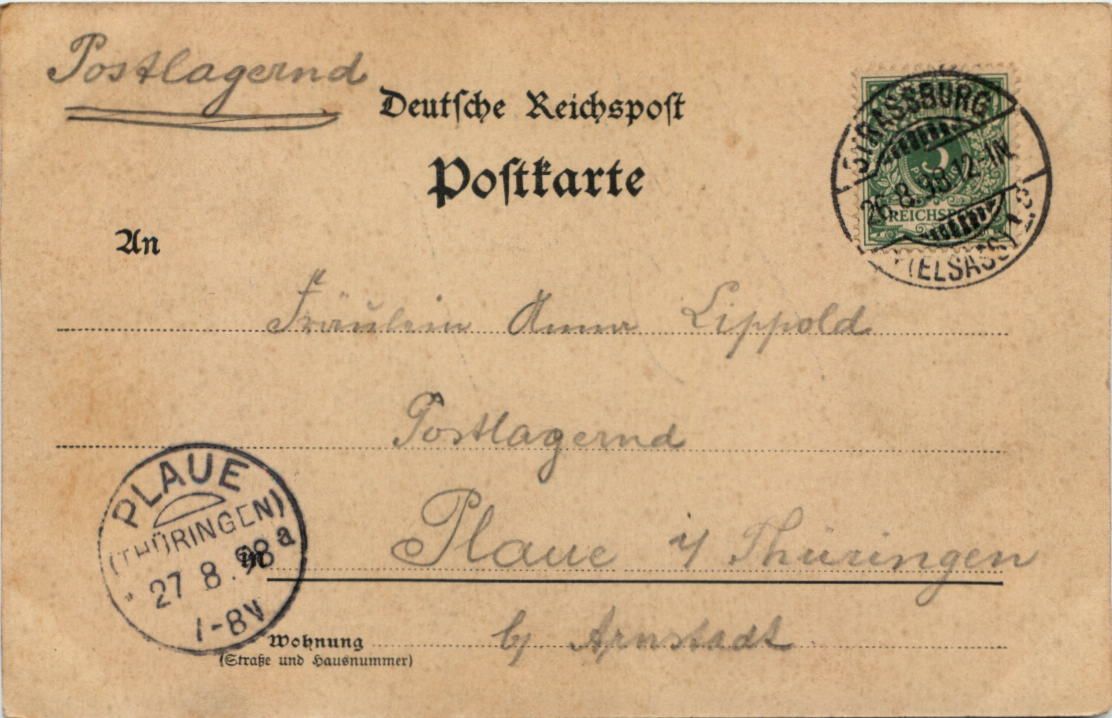 Postlagernd
Deutsche Reichspost
Postkarte
STRASSBURG
26.8.98.12-1N
(ELSASS) 1.c
5
REICHSP
An
Fräulein Anna Lippold
Postlagernd
PLAUE
(THÜRINGEN)
27 8.98 a
7-8V
in Plaue i/ Thüringen
b/ Arnstadt
Wohnung
(Straße und Hausnummer)